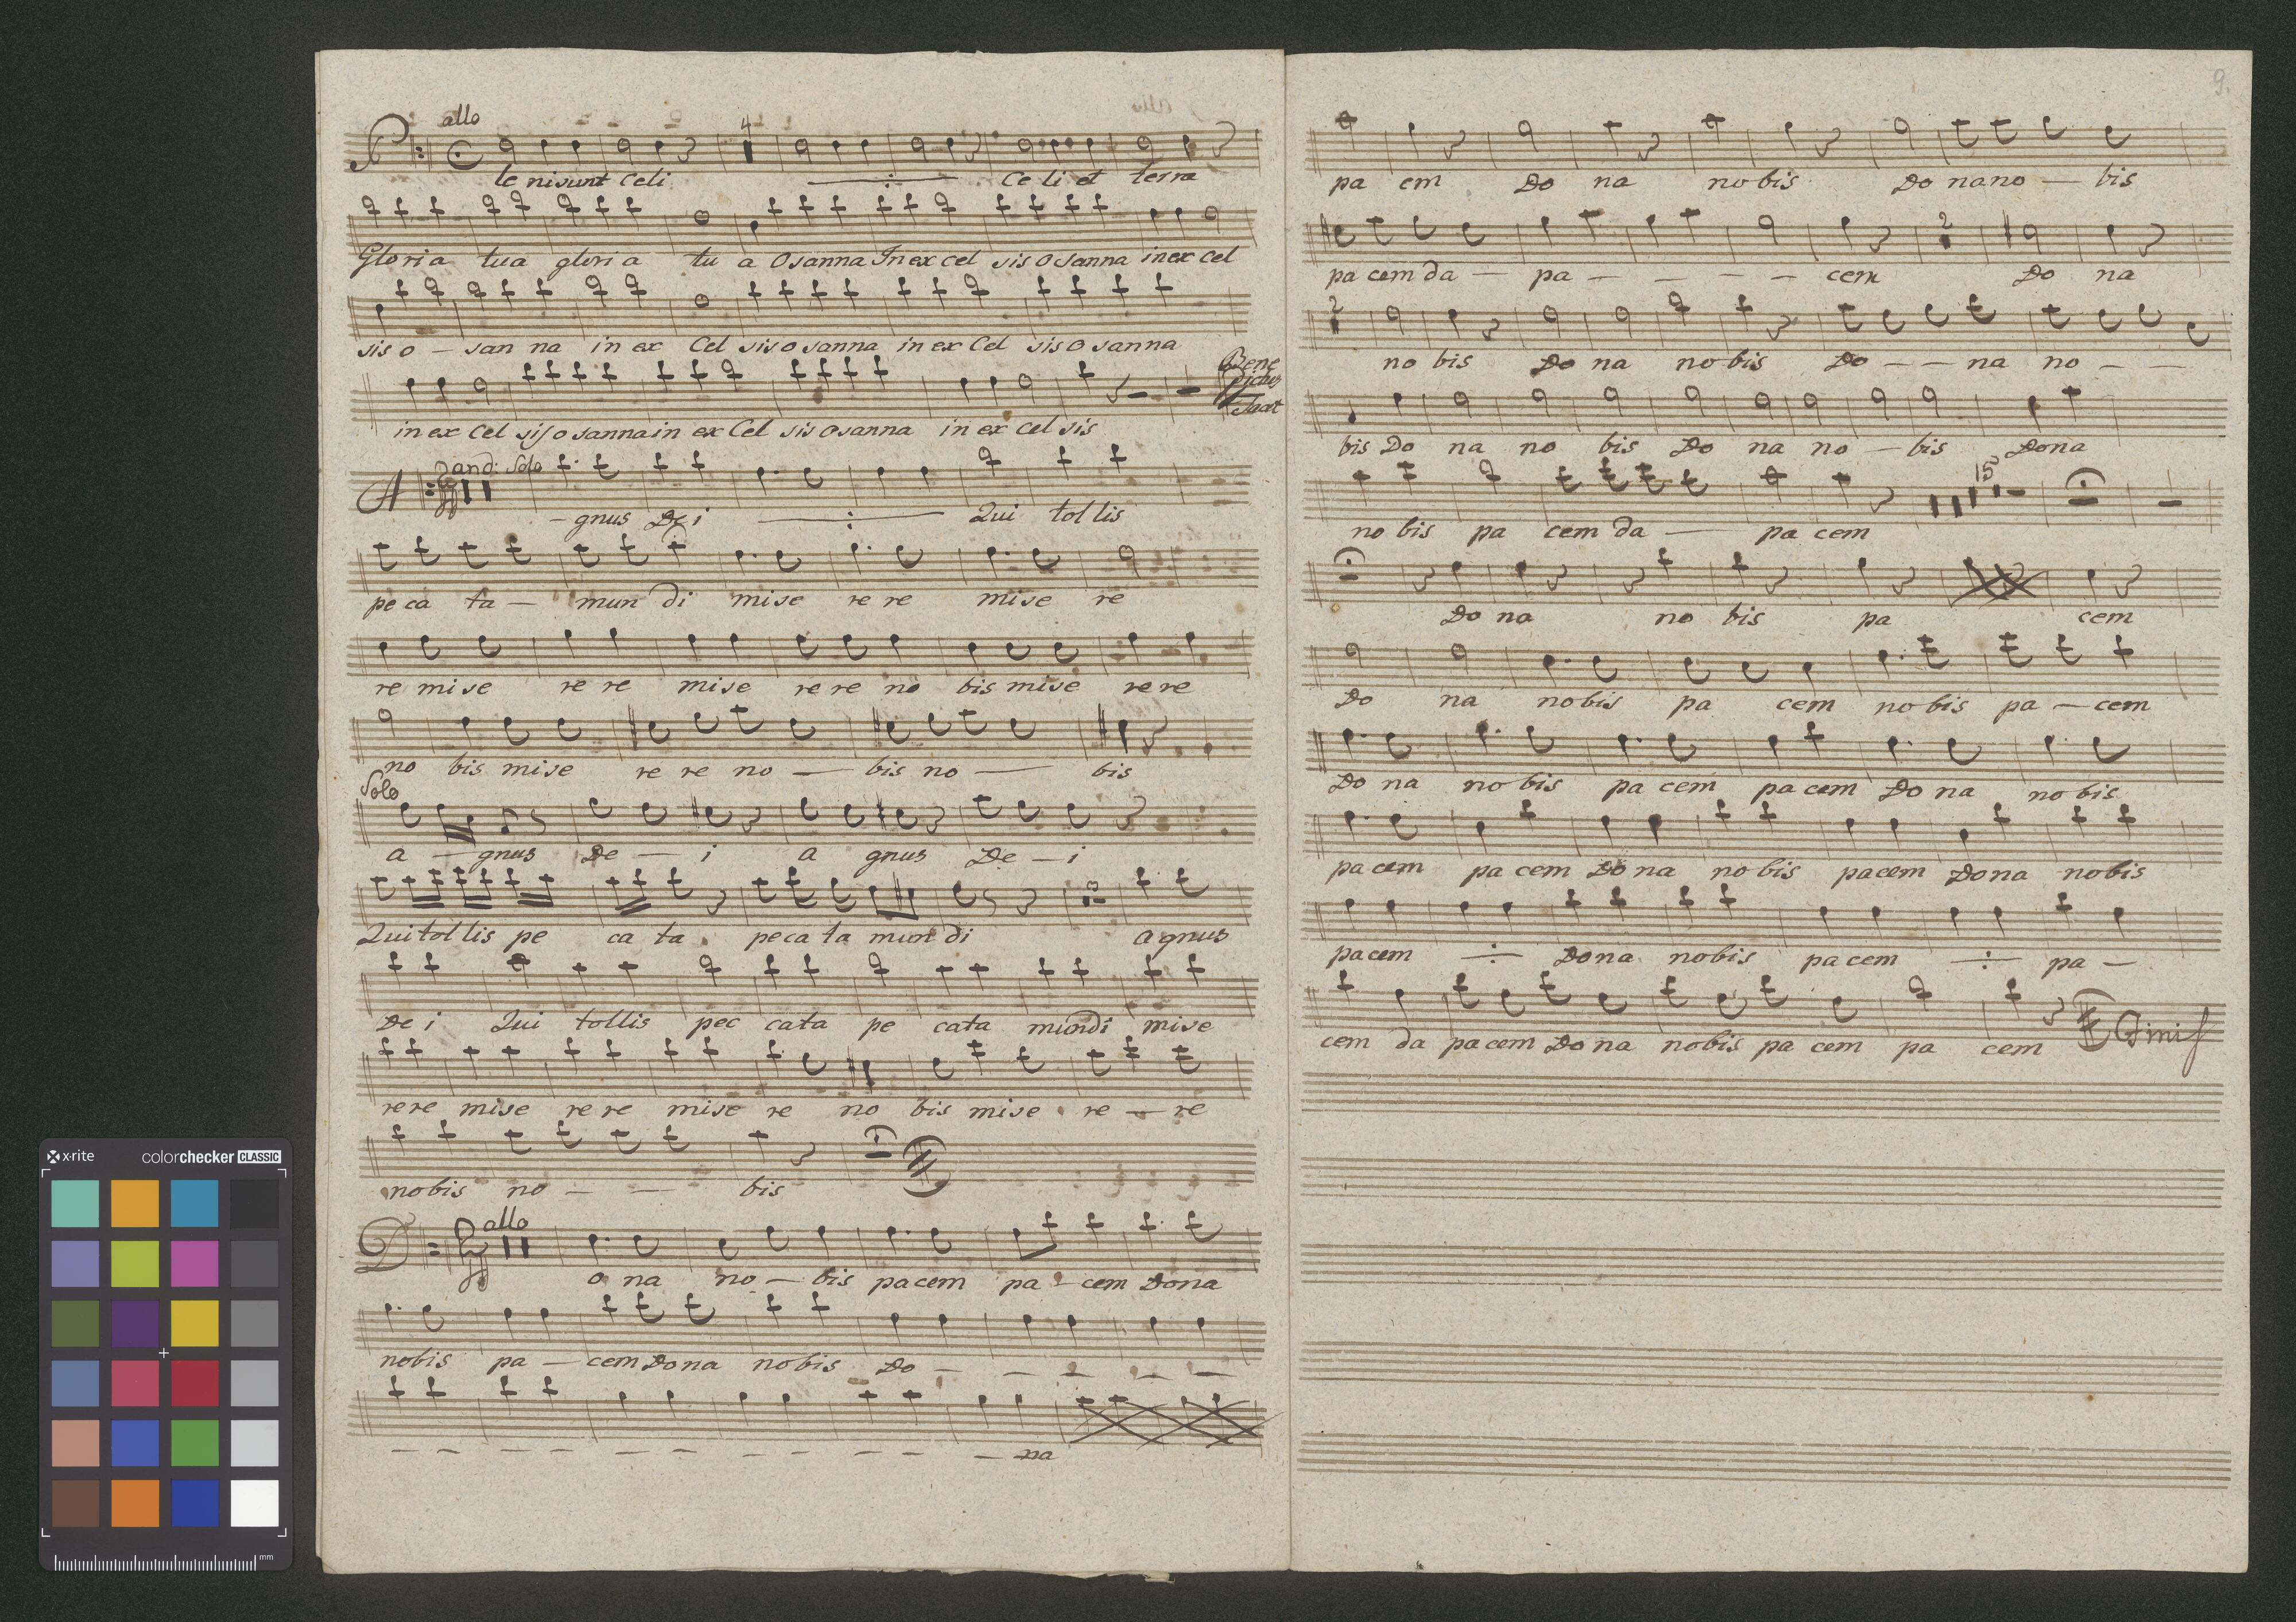 allo
4
P le nisunt Celi Celi et terra
Gloria tua gloria tu a Osanna In ex cel sis Osanna in ex cel
sis o — san na in ex Cel sis osanna in ex Cel sis O sanna
Bene
dictus
Tacet
in ex Cel sis osanna in ex Cel sis Osanna in ex cel sis
and: Solo
A – gnus Dei Qui tollis
pe ca ta — mun di mise re re mise re
re mise re re mise re re no bis mise re re
no bis mise re re no — bis no — bis
Solo
a — gnus De — i a gnus De — i
Qui tol lis pe ca ta peca ta mun di agnus
De i Qui tollis pec cata pe cata mundi mise
rere mise re re mise re no bis mise re — re
nobis no — — bis
allo
D o na no — bis pacem pa - cem Dona
nobis pa — cem Dona nobis Do — — — — —
— — — — — — — — — — — na
9.
pa cem Do na nobis Do na no — bis
2
pa cem da — pa — — — — cem Do na
2
no bis Do na nobis Do — — na no — —
bis Do na no bis Do na no — bis Dona
15
no bis pa cem da — pa cem
Do na no bis pa cem
Do na nobis pa cem no bis pa — cem
Do na no bis pa cem pa cem Do na no bis
pa cem pa cem Do na no bis pacem Dona nobis
pacem Dona nobis pa cem pa —
cem da pa cem Do na nobis pa cem pa cem
Finis
x·rite colorchecker CLASSIC
mm